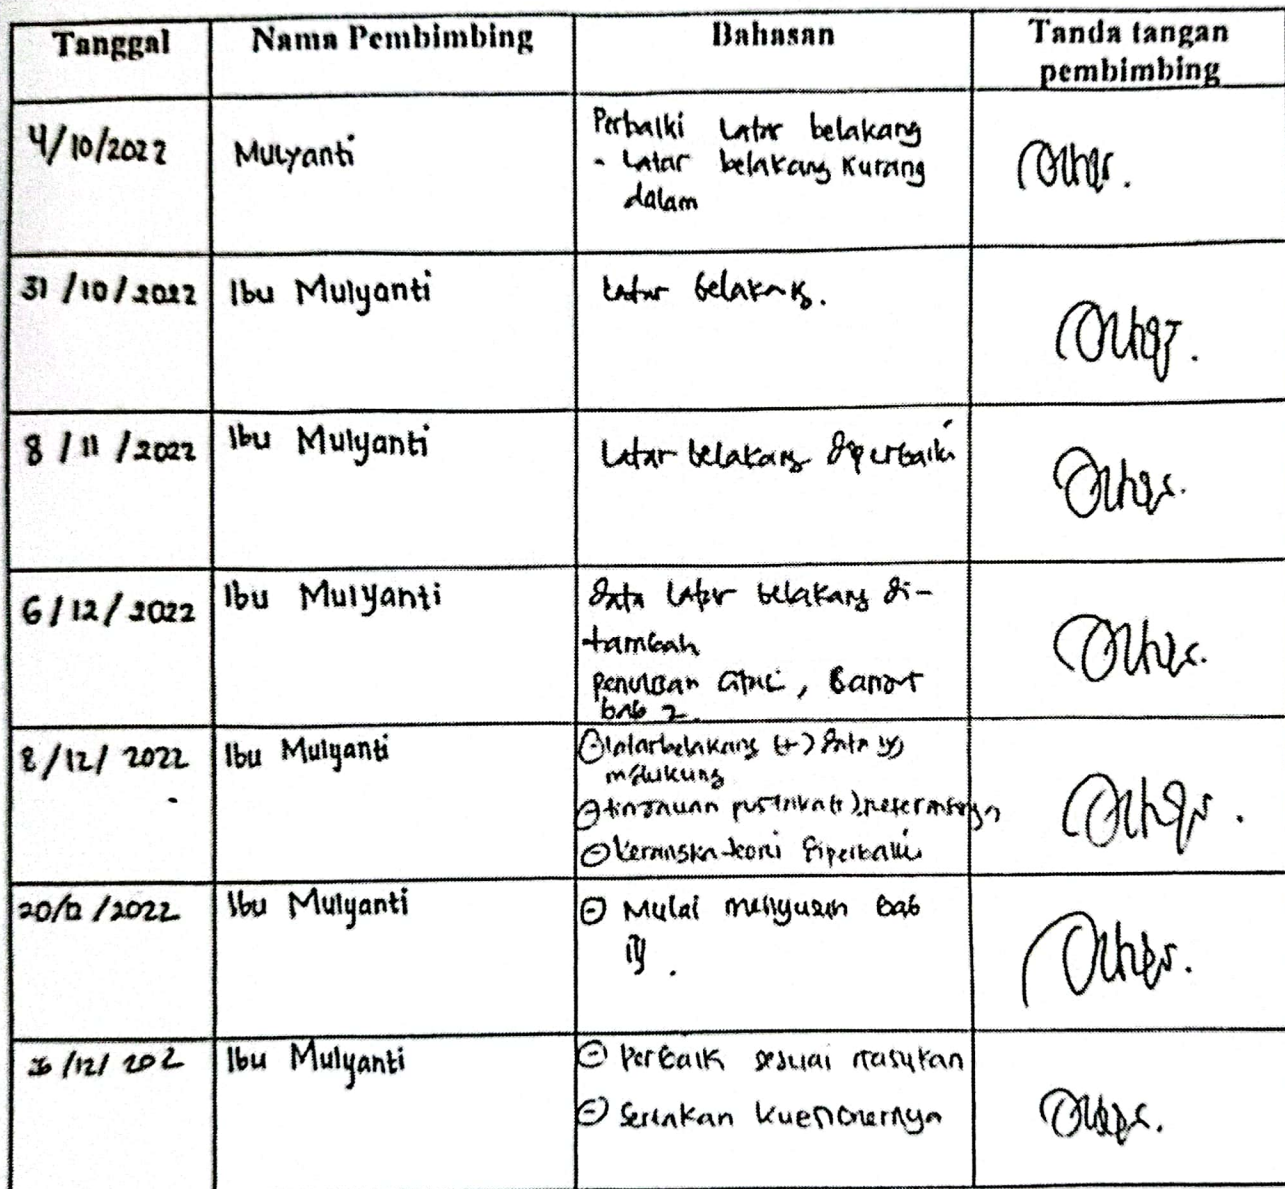 Tanggal
Nama Pembimbing
Bahasan
Tanda tangan
pembimbing
4/10/2022
Mulyanti
Perbaiki latar belakang
- Latar belakang kurang
dalam
31/10/2022
Ibu Mulyanti
Latar belakang.
8/11/2022
Ibu Mulyanti
Latar belakang diperbaiki
6/12/2022
Ibu Mulyanti
Data latar belakang di-
tambah
penulisan
bab 2.
8/12/2022
Ibu Mulyanti
latar belakang (+) data yg
mendukung
tinjauan pustaka (+)
kerangka teori diperbaiki
20/12/2022
Ibu Mulyanti
Mulai menyusun Bab
/12/202
Ibu Mulyanti
Perbaik sesuai masukan
Sertakan kuesionernya